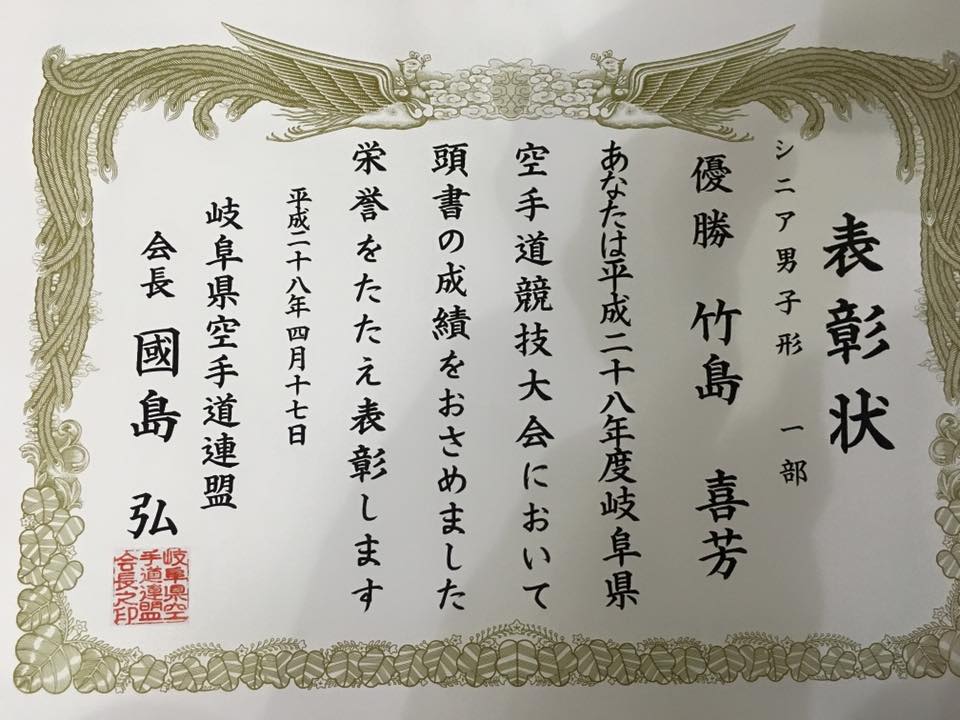 表彰状
シニア男子形 一部
優勝 竹島 喜芳
あなたは平成二十八年度岐阜県
空手道競技大会において
頭書の成績をおさめました
栄誉をたたえ表彰します
平成二十八年四月十七日
岐阜県空手道連盟
会長 國島 弘
岐阜県空
手道連盟
会長之印